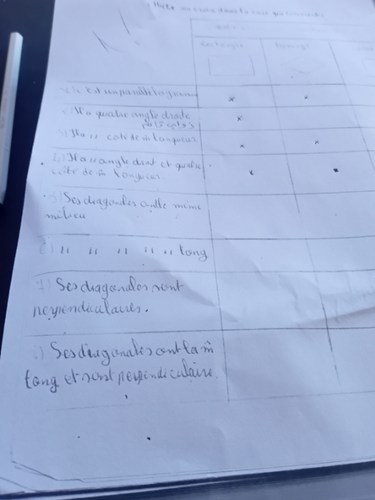 Mets une croix dans la case qui convient.
Rectangle
1) C'est un parallélogramme
2) Il a quatre angle droite
3) Il a 4 coté de m longueur
4) Il a 4 angle droit et quatre
coté de m longueur.
5) Ses diagonales ont le même
milieu
6) " " " " " long
7) Ses diagonales sont
perpendiculaires.
8) Ses diagonales ont la m
long et sont perpendiculaire.